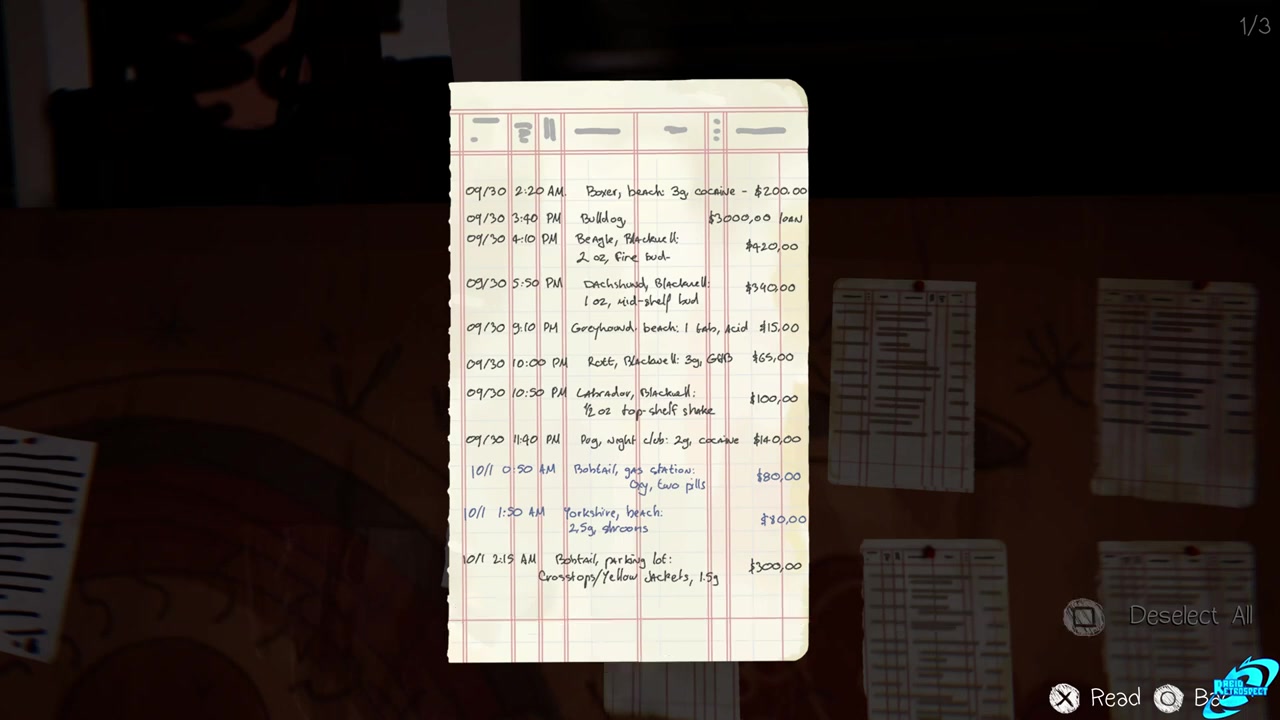 1/3
09/30 2:20 AM. Boxer, beach: 3g, cocaine - $200.00
09/30 3:40 PM Bulldog, $3000,00 loan
09/30 4:10 PM Beagle, Blackwell:
2 oz, fire bud- $420,00
09/30 5:50 PM Dachshund, Blackwell:
1 oz, mid-shelf bud $340,00
09/30 9:10 PM Greyhound, beach: 1 tab, acid $15,00
09/30 10:00 PM Rott, Blackwell: 3g, GHB $65,00
09/30 10:50 PM Labrador, Blackwell:
1/2 oz top-shelf shake $100,00
09/30 11:40 PM Pug, night club: 2g, cocaine $140,00
10/1 0:50 AM Bobtail, gas station:
Oxy, two pills $80,00
10/1 1:50 AM Yorkshire, beach:
2,5g, shrooms
10/1 2:15 AM Bobtail, parking lot:
Crosstops/Yellow Jackets, 1.5g $300,00
Deselect All
Read
RAPID
RETROSPECT